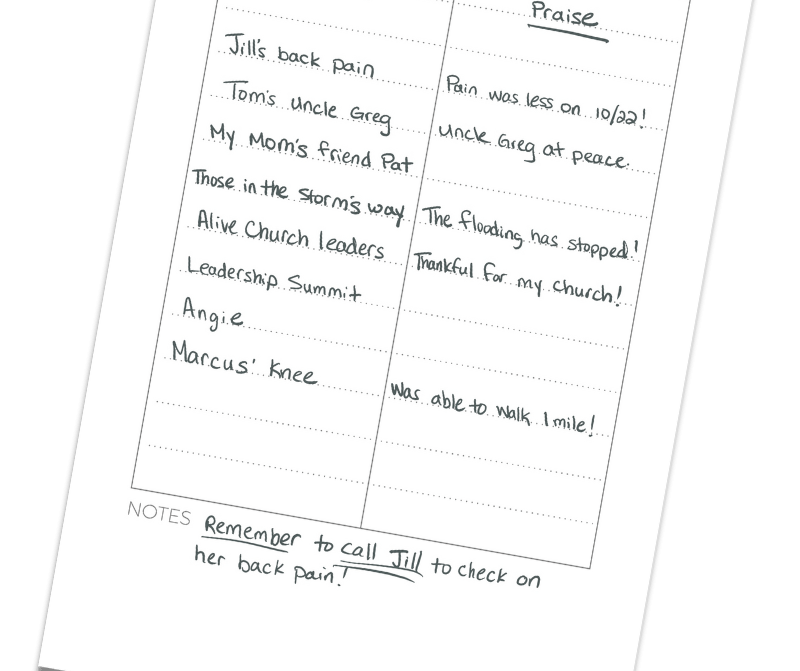 Praise
Jill's back pain
Pain was less on 10/22!
Tom's uncle Greg
Uncle Greg at peace.
My Mom's friend Pat
Those in the storm's way
The flooding has stopped!
Alive Church leaders
Thankful for my church!
Leadership Summit
Angie
Marcus' Knee
Was able to walk 1 mile!
NOTES Remember to call Jill to check on
her back pain!